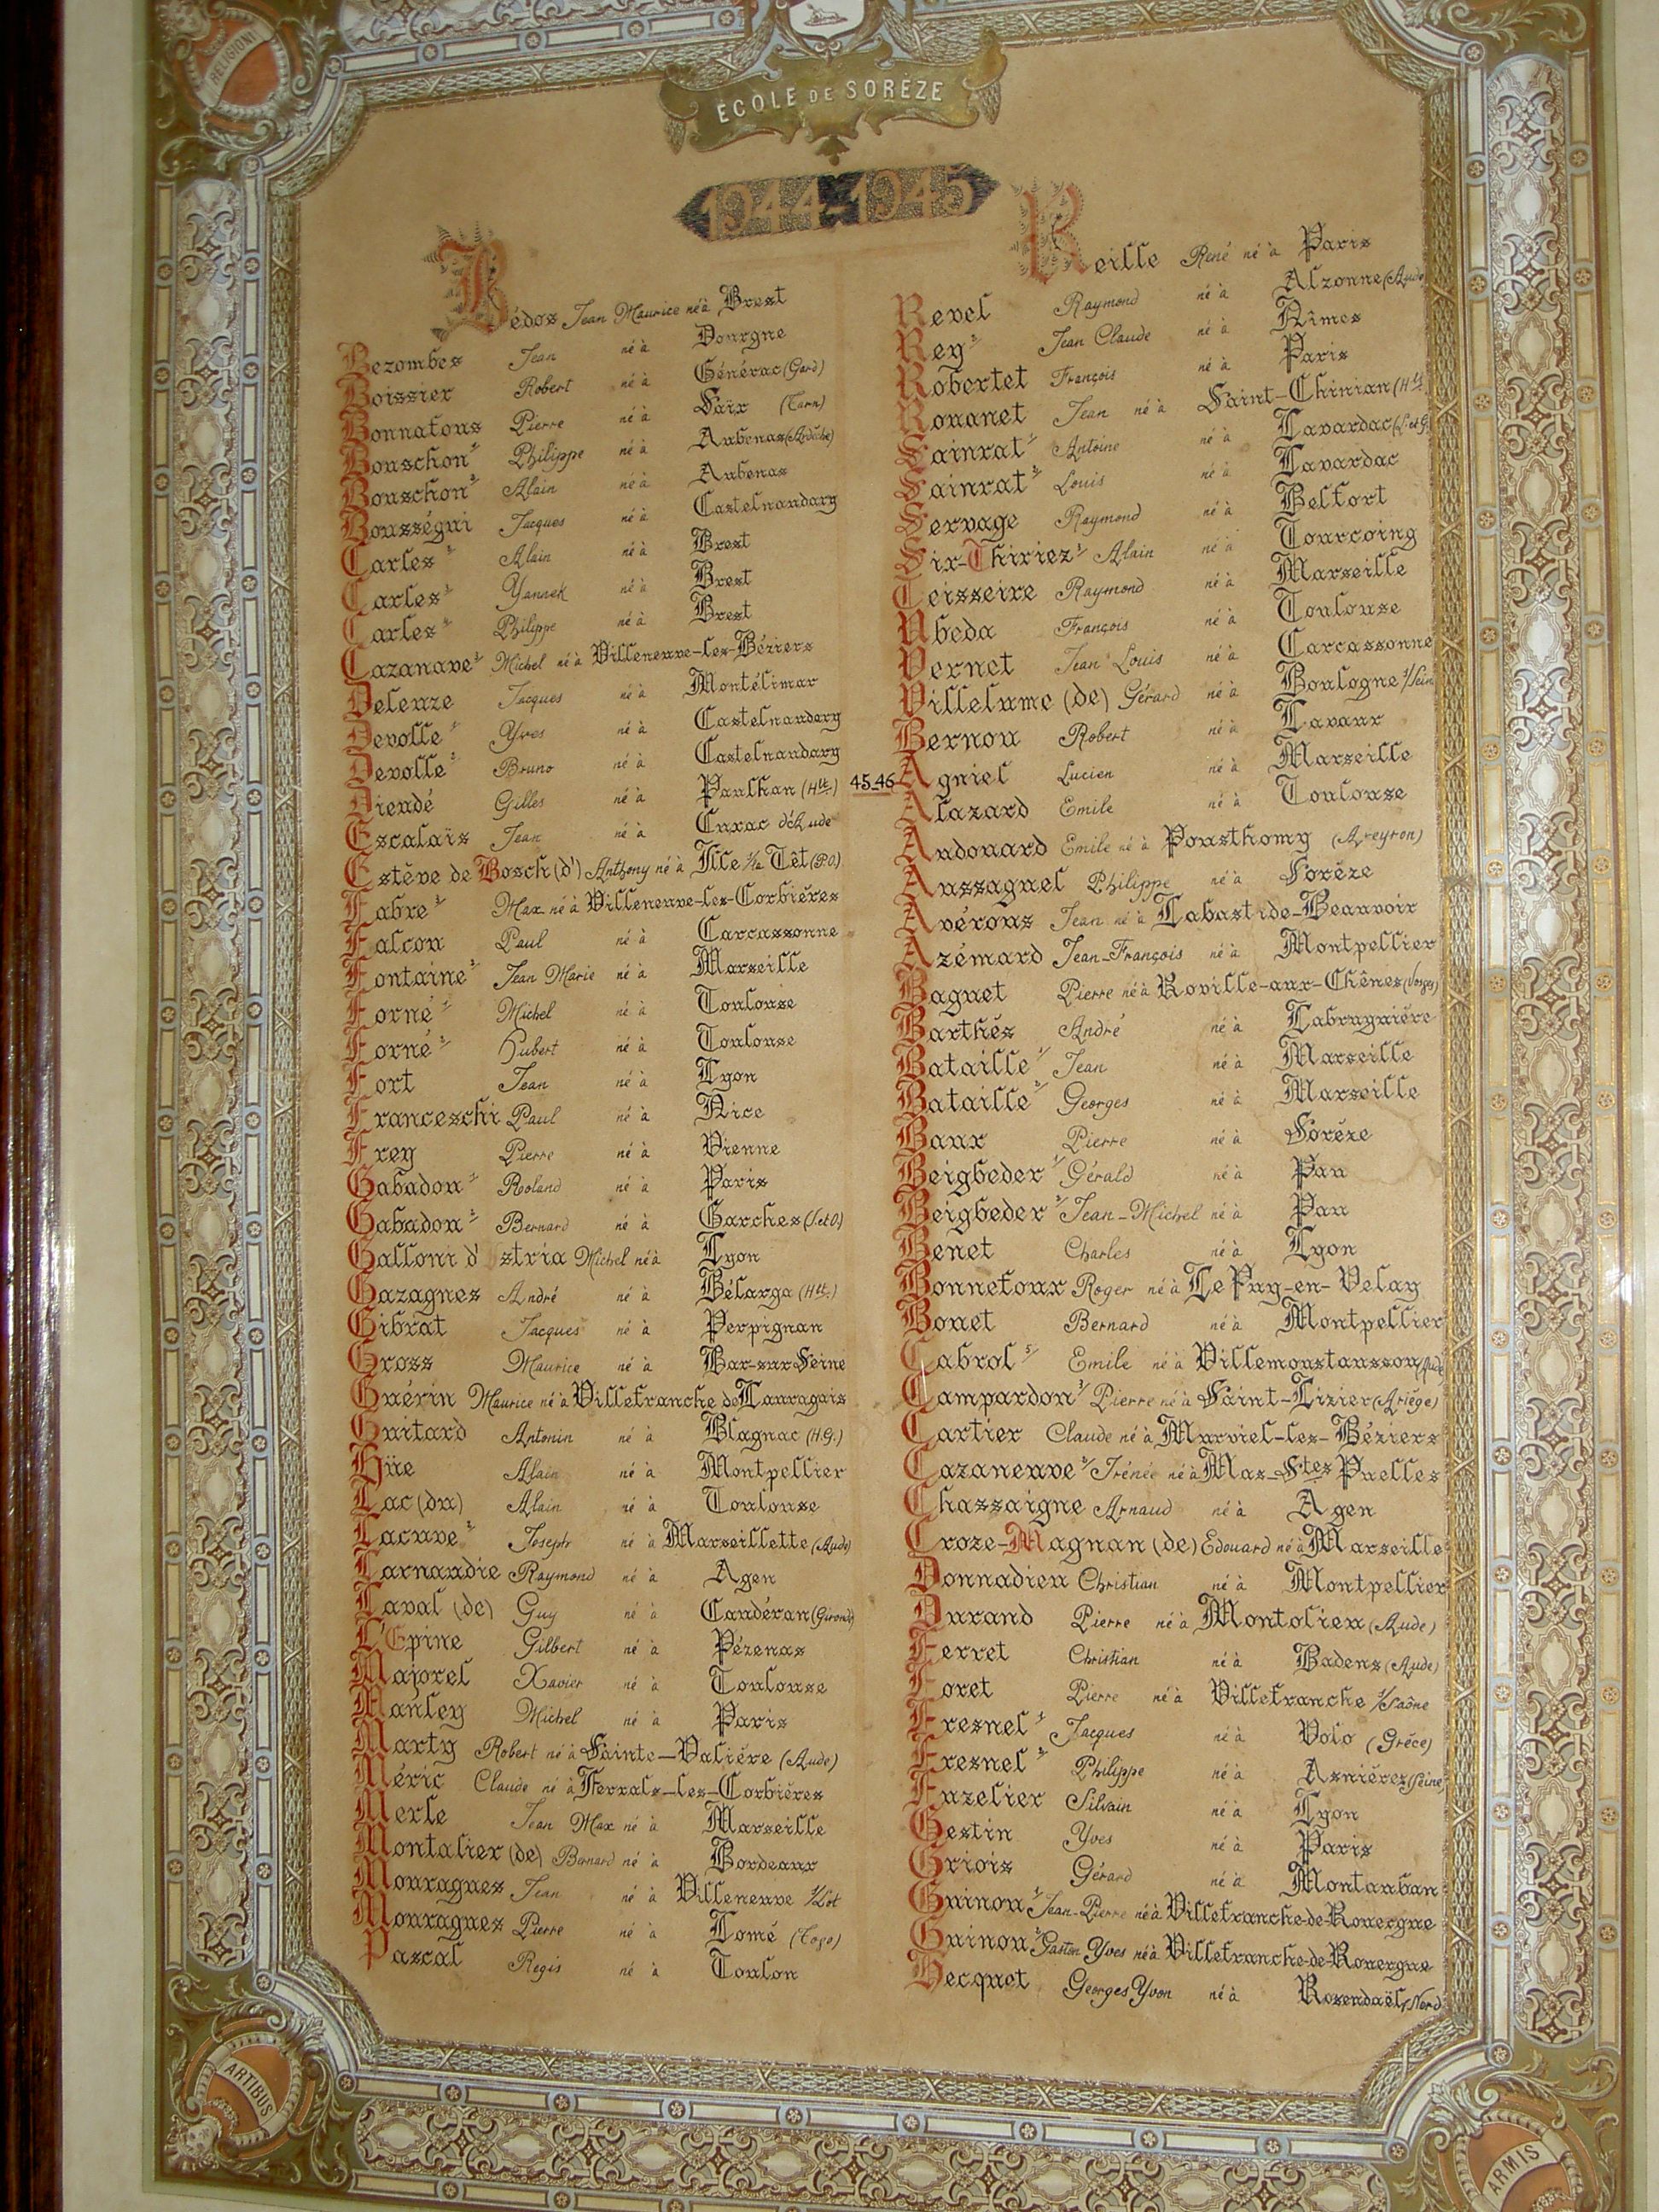 RELIGIONI
ÉCOLE DE SORÈZE
1944-1945
Bédos Jean Maurice né à Brest
Bezombes Jean né à Dourgne
Boissier Robert né à Générac (Gard)
Bonnafous Pierre né à Saïx (Tarn)
Bouschon Philippe né à Aubenas (Ardèche)
Bouschon Alain né à Aubenas
Bousségui Jacques né à Castelnaudary
Carles Alain né à Brest
Carles Yannek né à Brest
Carles Philippe né à Brest
Cazanave Michel né à Villeneuve-les-Béziers
Deleuze Jacques né à Montélimar
Devolle Yves né à Castelnaudary
Devolle Bruno né à Castelnaudary
Dieudé Gilles né à Paulhan (Hlt.)
Escalaïs Jean né à Cuxac d'Aude
Estève de Bosch (d') Anthony né à Ille s/la Têt (P.O)
Fabre Max né à Villeneuve-les-Corbières
Falcou Paul né à Carcassonne
Fontaine Jean Marie né à Marseille
Forné Michel né à Toulouse
Forné Hubert né à Toulouse
Fort Jean né à Lyon
Franceschi Paul né à Nice
Frey Pierre né à Vienne
Gabadou Roland né à Paris
Gabadou Bernard né à Garches (S.et O.)
Galloni d' stria Michel né à Lyon
Gazagnes André né à Bélarga (Hlt.)
Gibrat Jacques né à Perpignan
Gross Maurice né à Bar-sur-Seine
Guérin Maurice né à Villefranche de Lauragais
Guitard Antonin né à Blagnac (H.G.)
Hüe Alain né à Montpellier
Lac (du) Alain né à Toulouse
Lacuve Joseph né à Marseillette (Aude)
Larnaudie Raymond né à Agen
Laval (de) Guy né à Caudéran (Gironde)
L'Epine Gilbert né à Pézenas
Majorel Xavier né à Toulouse
Manley Michel né à Paris
Marty Robert né à Sainte-Valière (Aude)
Méric Claude né à Ferrals-les-Corbières
Merle Jean Max né à Marseille
Montalier (de) Bernard né à Bordeaux
Mouragues Jean né à Villeneuve s/Lot
Mouragues Pierre né à Lomé (Togo)
Pascal Régis né à Toulon
Reille René né à Paris
Revel Raymond né à Alzonne (Aude)
Rey Jean Claude né à Nîmes
Robertet François né à Paris
Rouanet Jean né à Saint-Chinian (Hlt.
Sainrat Antoine né à Lavardac (L.et G.
Sainrat Louis né à Lavardac
Servage Raymond né à Belfort
Six-Thiriez Alain né à Tourcoing
Teisseire Raymond né à Marseille
Ubeda François né à Toulouse
Vernet Jean Louis né à Carcassonne
Villelume (de) Gérard né à Boulogne s/Seine
Bernou Robert né à Lavaur
45-46 Agniel Lucien né à Marseille
Alazard Emile né à Toulouse
Audouard Emile né à Pousthomy (Aveyron)
Aussaguel Philippe né à Sorèze
Avérous Jean né à Labastide-Beauvoir
Azémard Jean-François né à Montpellier
Baguet Pierre né à Roville-aux-Chênes (Vosges)
Barthés André né à Labruguière
Bataille Jean né à Marseille
Bataille Georges né à Marseille
Baux Pierre né à Sorèze
Beigbeder Gérald né à Pau
Beigbeder Jean-Michel né à Pau
Benet Charles né à Lyon
Bonnefoux Roger né à Le Puy-en-Velay
Bouet Bernard né à Montpellier
Cabrol Emile né à Villemoustaussou (Aude)
Campardon Pierre né à Saint-Lizier (Ariège)
Cartier Claude né à Murviel-les-Béziers
Cazaneuve Irénée né à Mas-Stes Puelles
Chassaigne Arnaud né à Agen
Croze-Magnan (de) Edouard né à Marseille
Donnadieu Christian né à Montpellier
Durand Pierre né à Montolieu (Aude)
Ferret Christian né à Badens (Aude)
Foret Pierre né à Villefranche s/Saône
Fresnel Jacques né à Volo (Grèce)
Fresnel Philippe né à Asnières (Seine)
Fuzelier Silvain né à Lyon
Gestin Yves né à Paris
Griois Gérard né à Montauban
Guinou Jean-Pierre né à Villefranche-de-Rouergue
Guinou Gaston Yves né à Villefranche-de-Rouergue
Hecquet Georges Yvon né à Rosendaël (Nord)
ARTIBUS
ARMIS